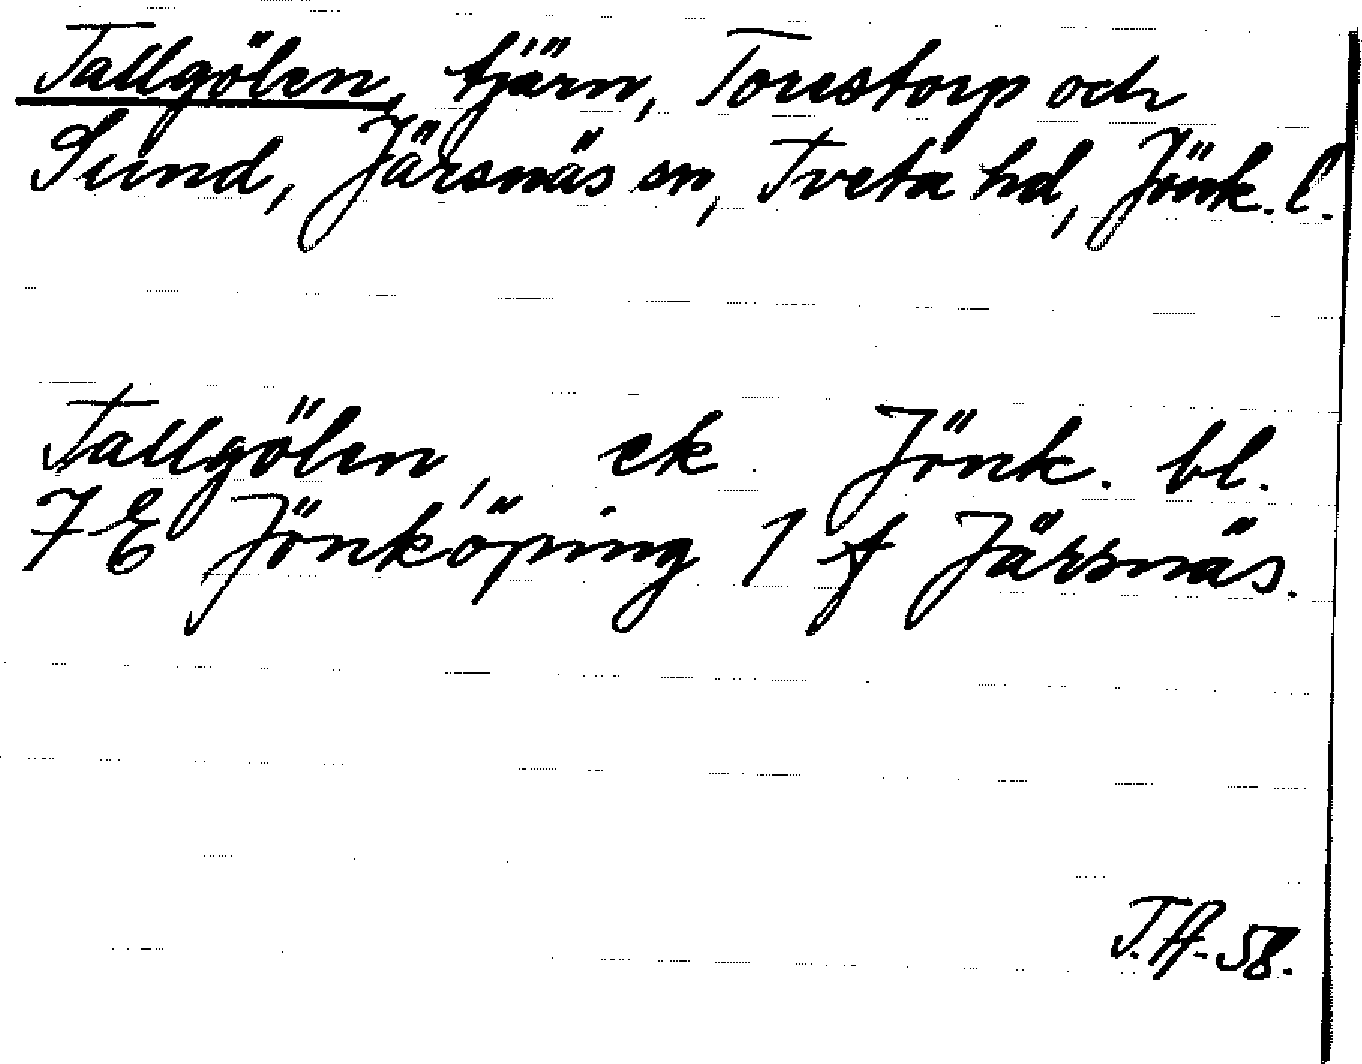 Tallgölen, tjärn, Torestorp och
Sund, Järsnäs sn, Tveta hd, Jönk. l.
Tallgölen, ek Jönk. bl.
7 E Jönköping 1 f Järsnäs.
T.A. 58.